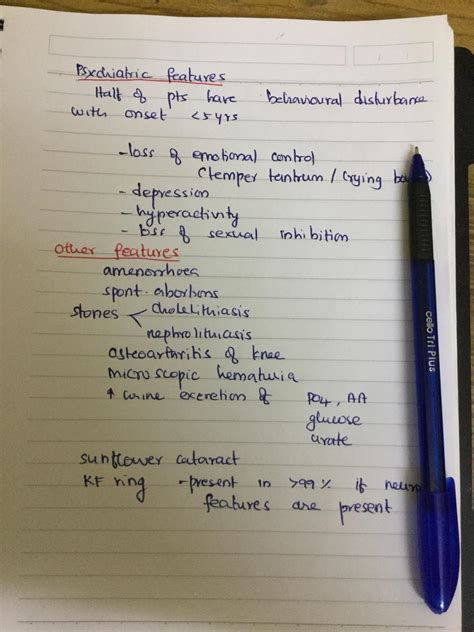 Psychiatric features
Half of pts have Behavioural disturbance
with onset <5yrs
- loss of emotional control
(temper tantrum / crying
- depression
- hyperactivity
- loss of sexual inhibition
Other features
amenorrhoea
spont. abortions
stones < cholelithiasis
nephrolithiasis
Osteoarthritis of knee
microscopic hematuria
↑ urine excretion of PO4, AA
glucose
urate
sunflower cataract
KF ring - present in >99% if
features are present
cello Tri Plus